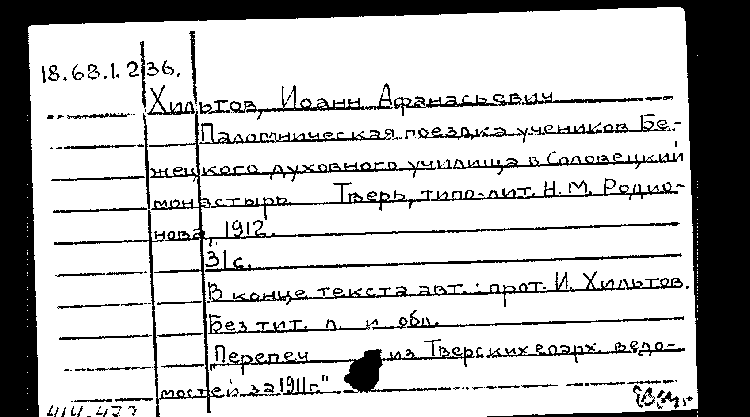 18.63.1.236.
Хильтов, Иоанн Афанасьевич
Паломническая поездка учеников Бе-
жецкого духовного училища в Соловецкий
монастырь Тверь, типо-лит. Н. М. Родио-
нова, 1912.
31 с.
В конце текста авт.: прот. И. Хильтов.
Без тит. л. и обл.
"Перепеч из Тверских епарх. ведо-
мостей за 1911г."